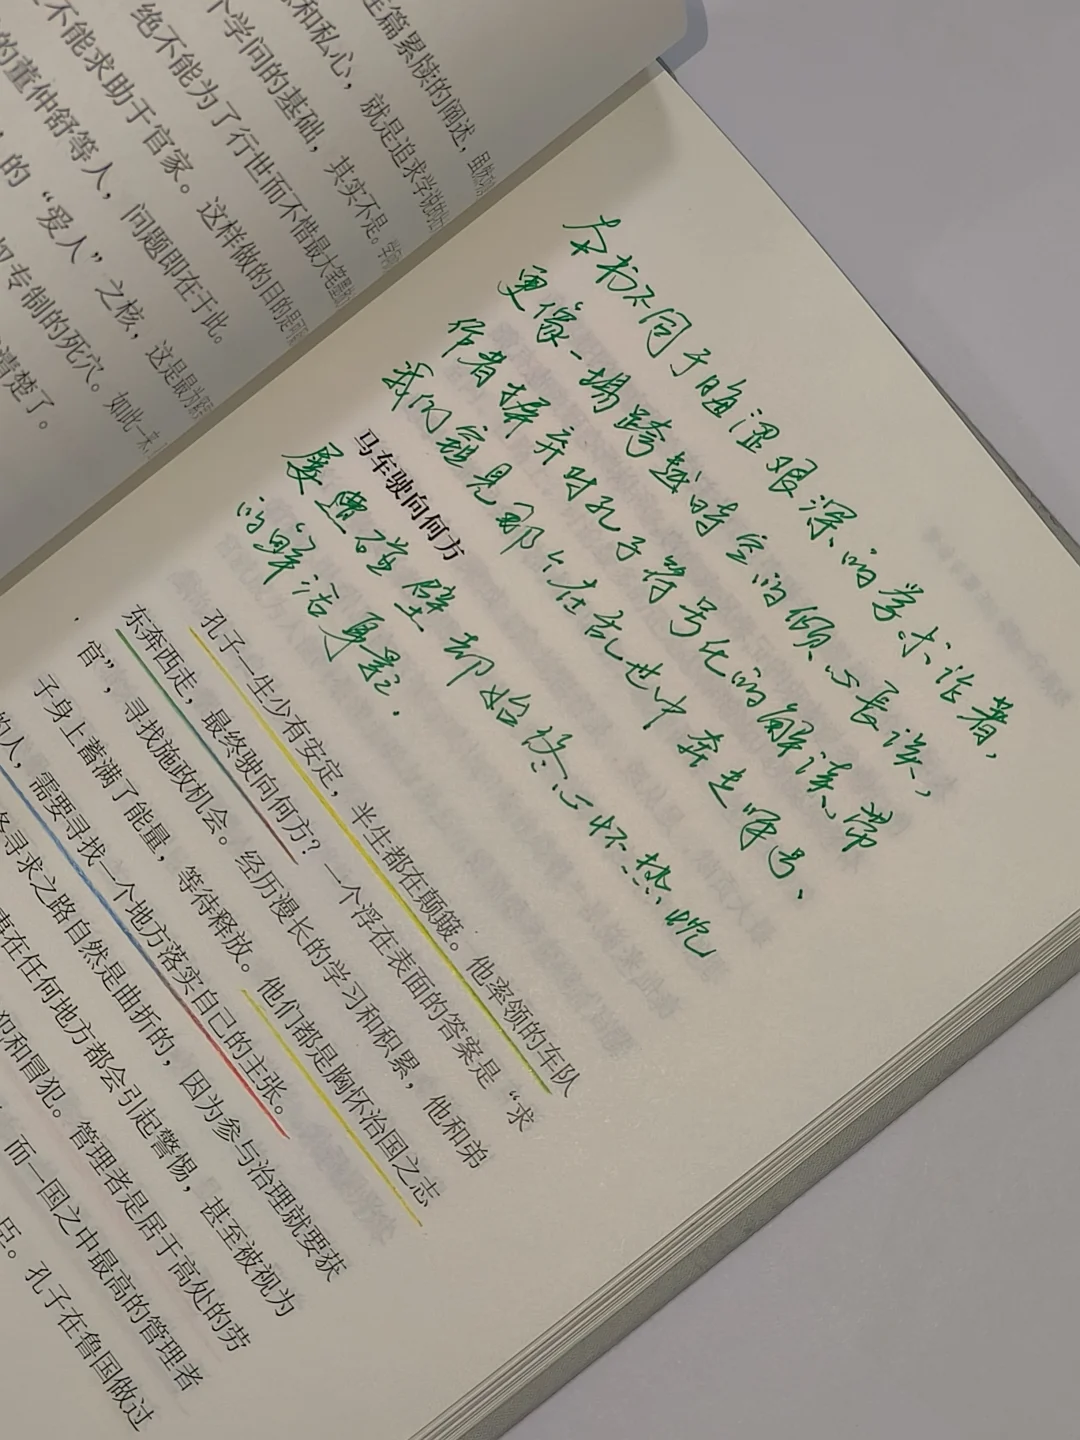 篇累牍的阐述，虽然
和私心，就是追求学说的
个学问的基础，其实不是。
绝不能为了行世而不惜最大
不能求助于官家。这样做的目的是
的董仲舒等人，问题即在于此。
的“爱人”之核，这是最为
专制的死穴。如此一来，
清楚了。
本书不同于晦涩艰深的学术论著，
更像一场跨越时空的倾心长谈，
作者摒弃对孔子符号化的解读，带
我们窥见那个在乱世中奔走呼号、
马车驶向何方
屡遭碰壁却始终心怀热忱
的鲜活身影.
孔子一生少有安定，半生都在颠簸。他率领的车队
东奔西走，最终驶向何方？一个浮在表面的答案是“求
官”，寻找施政机会。经历漫长的学习和积累，他和弟
子身上蓄满了能量，等待释放。他们都是胸怀治国之志
的人，需要寻找一个地方落实自己的主张。
寻求之路自然是曲折的，因为参与治理就要获
在任何地方都会引起警惕，甚至被视为
犯和冒犯。管理者是居于高处的劳
而一国之中最高的管理者
臣。孔子在鲁国做过